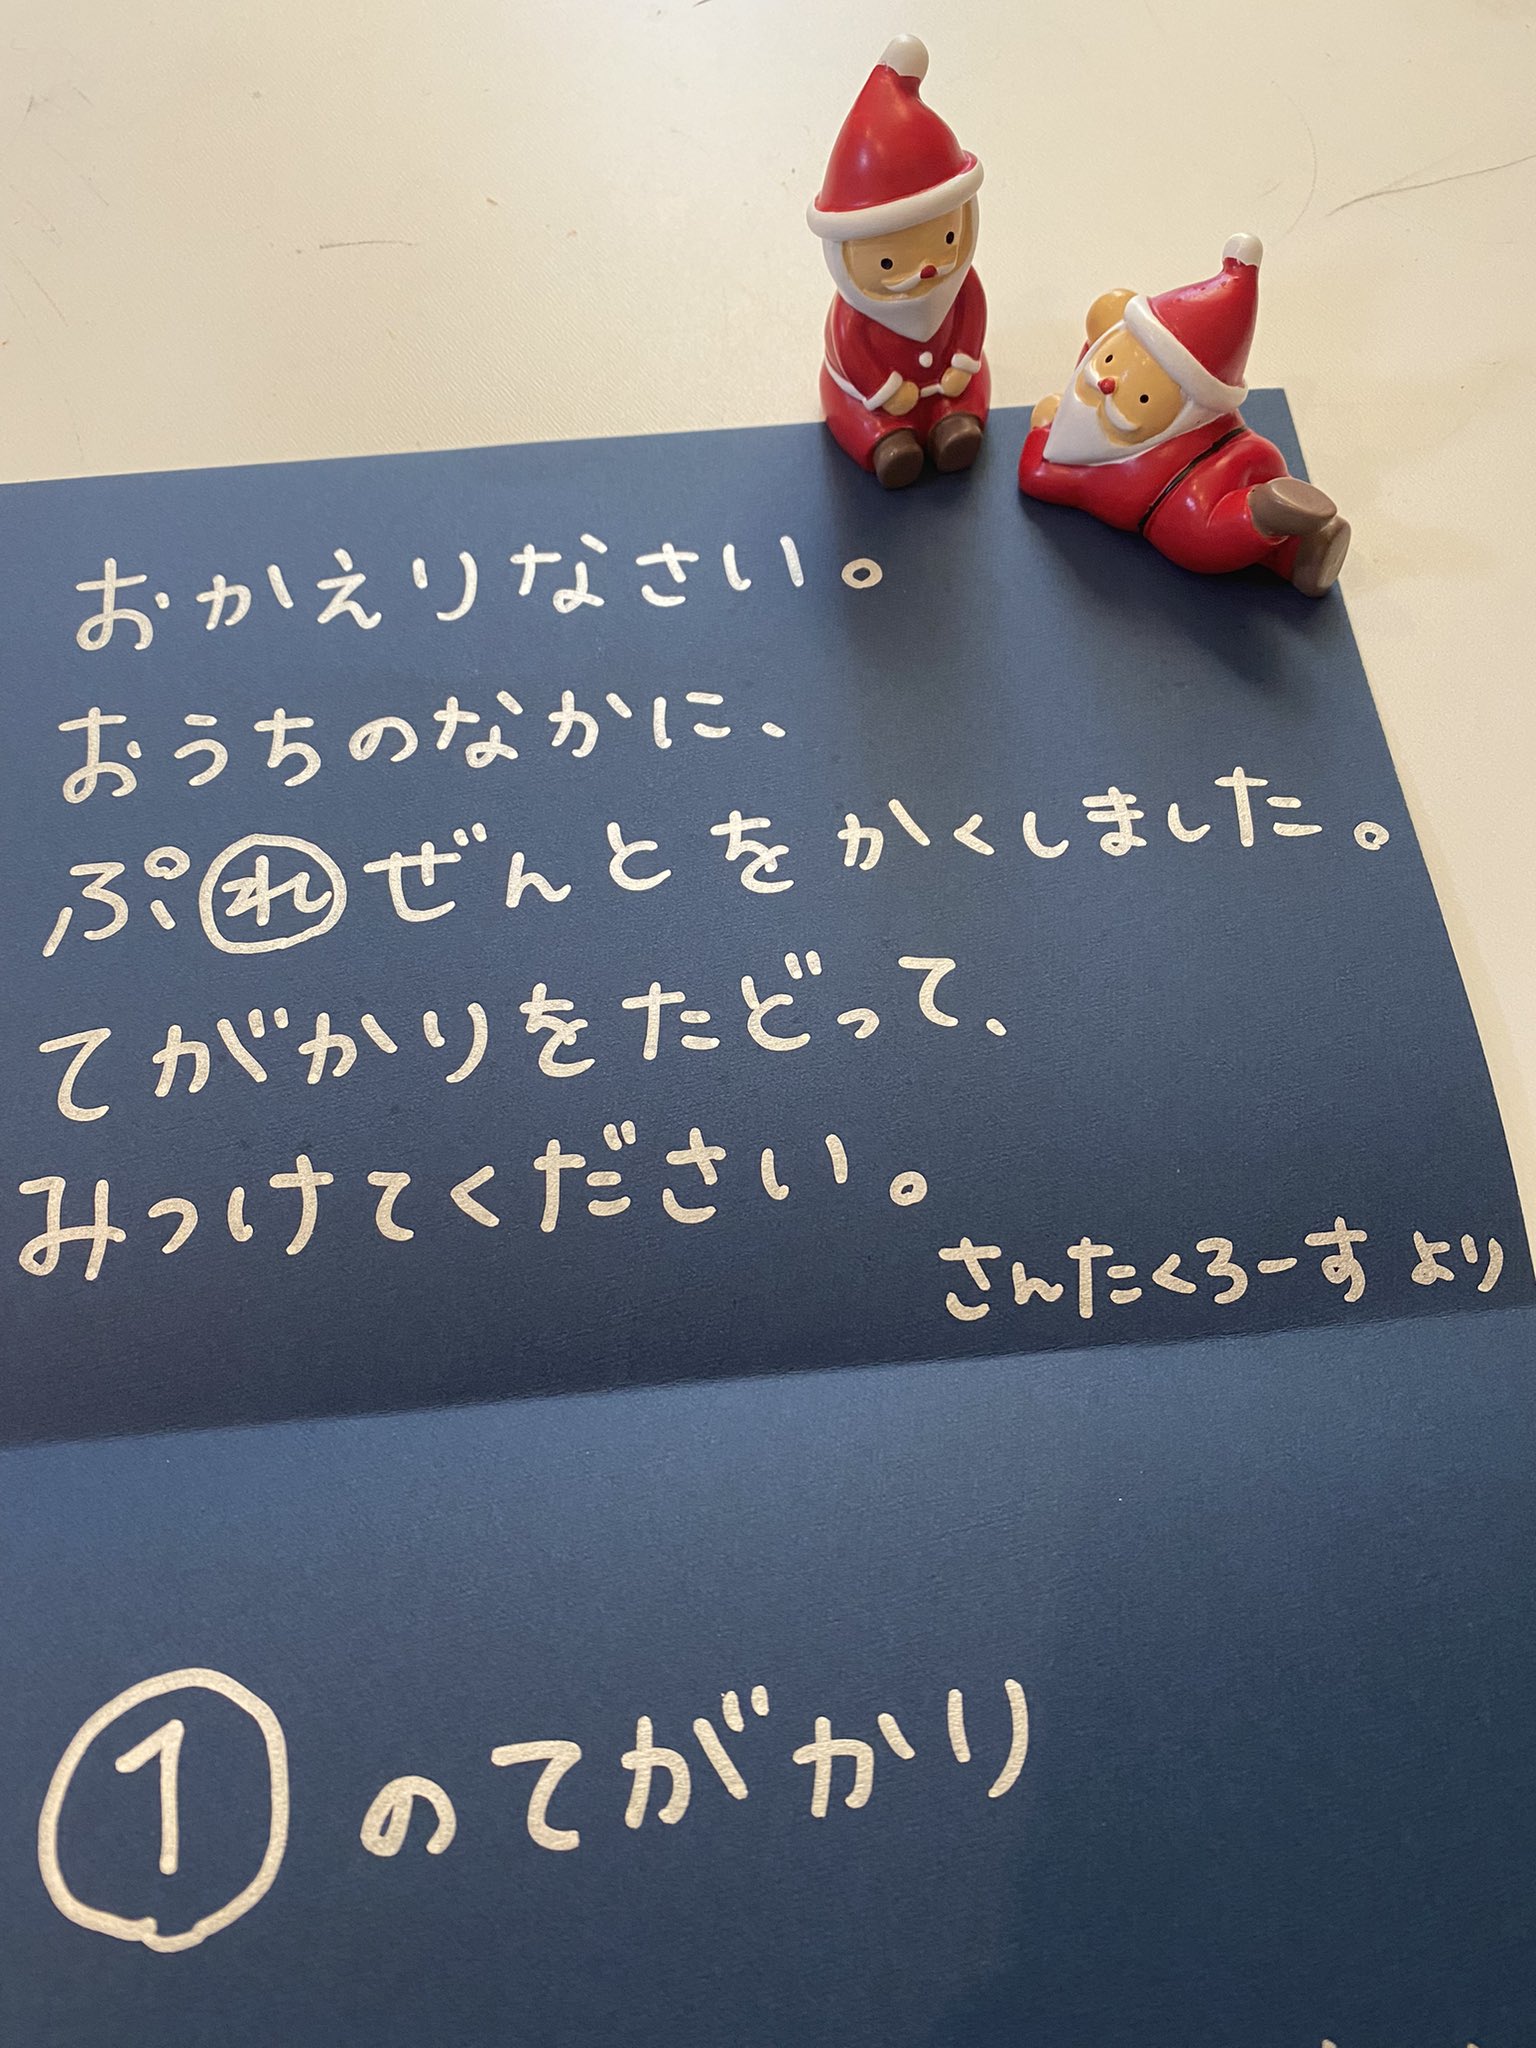 おかえりなさい。
おうちのなかに、
ぷれぜんとをかくしました。
てがかりをたどって、
みつけてください。
さんたくろーす より
① のてがかり